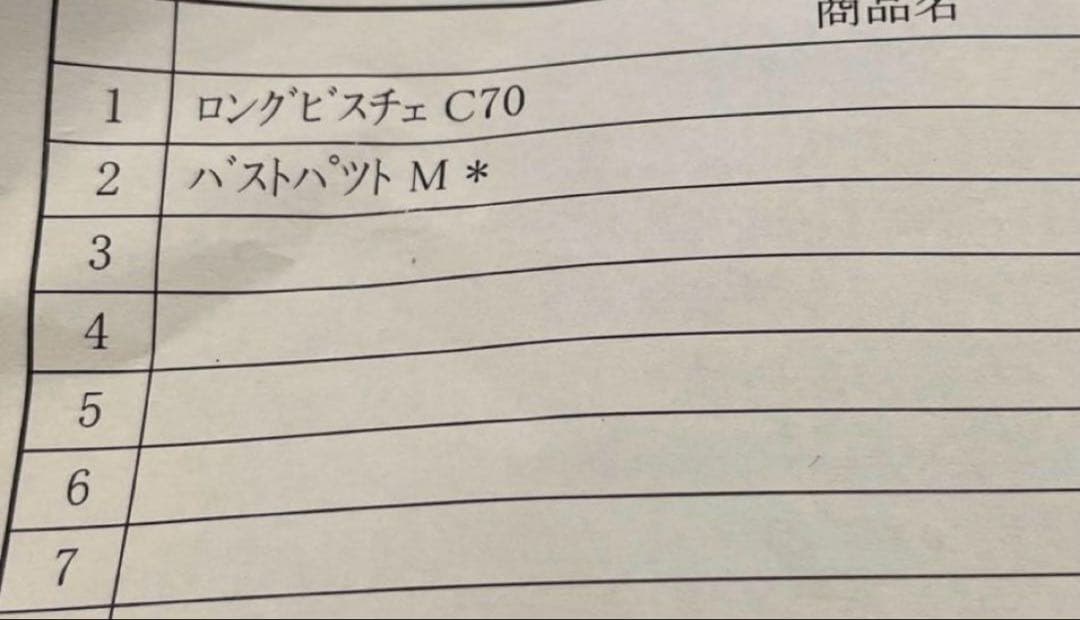 商品名
1 ロングビスチェ C70
2 バストパツト M *
3
4
5
6
7